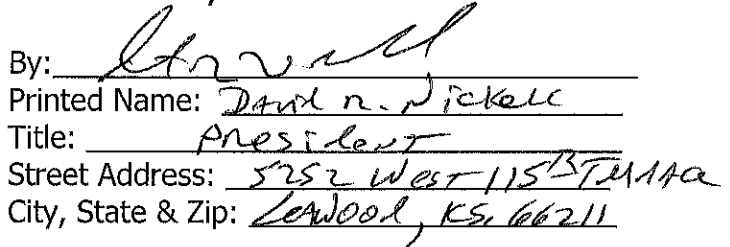 By:
Printed Name: David n. Nickell
Title: President
Street Address: 5252 West 115th Terrace
City, State & Zip: Leawood, KS. 66211